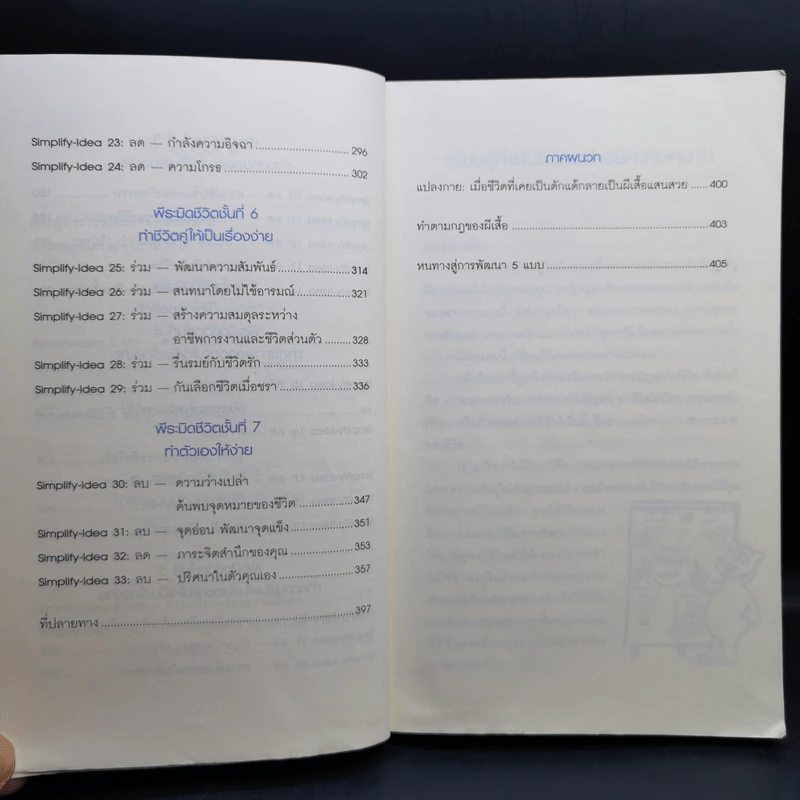 Simplify-Idea 23: ลด — กำลังความอิจฉา 296
Simplify-Idea 24: ลด — ความโกรธ 302
พีระมิดชีวิตชั้นที่ 6
ทำชีวิตคู่ให้เป็นเรื่องง่าย
Simplify-Idea 25: ร่วม — พัฒนาความสัมพันธ์ 314
Simplify-Idea 26: ร่วม — สนทนาโดยไม่ใช้อารมณ์ 321
Simplify-Idea 27: ร่วม — สร้างความสมดุลระหว่าง
อาชีพการงานและชีวิตส่วนตัว 328
Simplify-Idea 28: ร่วม — รื่นรมย์กับชีวิตรัก 333
Simplify-Idea 29: ร่วม — กันเลือกชีวิตเมื่อชรา 336
พีระมิดชีวิตชั้นที่ 7
ทำตัวเองให้ง่าย
Simplify-Idea 30: ลบ — ความว่างเปล่า
ค้นพบจุดหมายของชีวิต 347
Simplify-Idea 31: ลบ — จุดอ่อน พัฒนาจุดแข็ง 351
Simplify-Idea 32: ลด — ภาระจิตสำนึกของคุณ 353
Simplify-Idea 33: ลบ — ปริศนาในตัวคุณเอง 357
ที่ปลายทาง 397
ภาคผนวก
แปลงกาย: เมื่อชีวิตที่เคยเป็นดักแด้กลายเป็นผีเสื้อแสนสวย 400
ทำตามกฎของผีเสื้อ 403
หนทางสู่การพัฒนา 5 แบบ 405